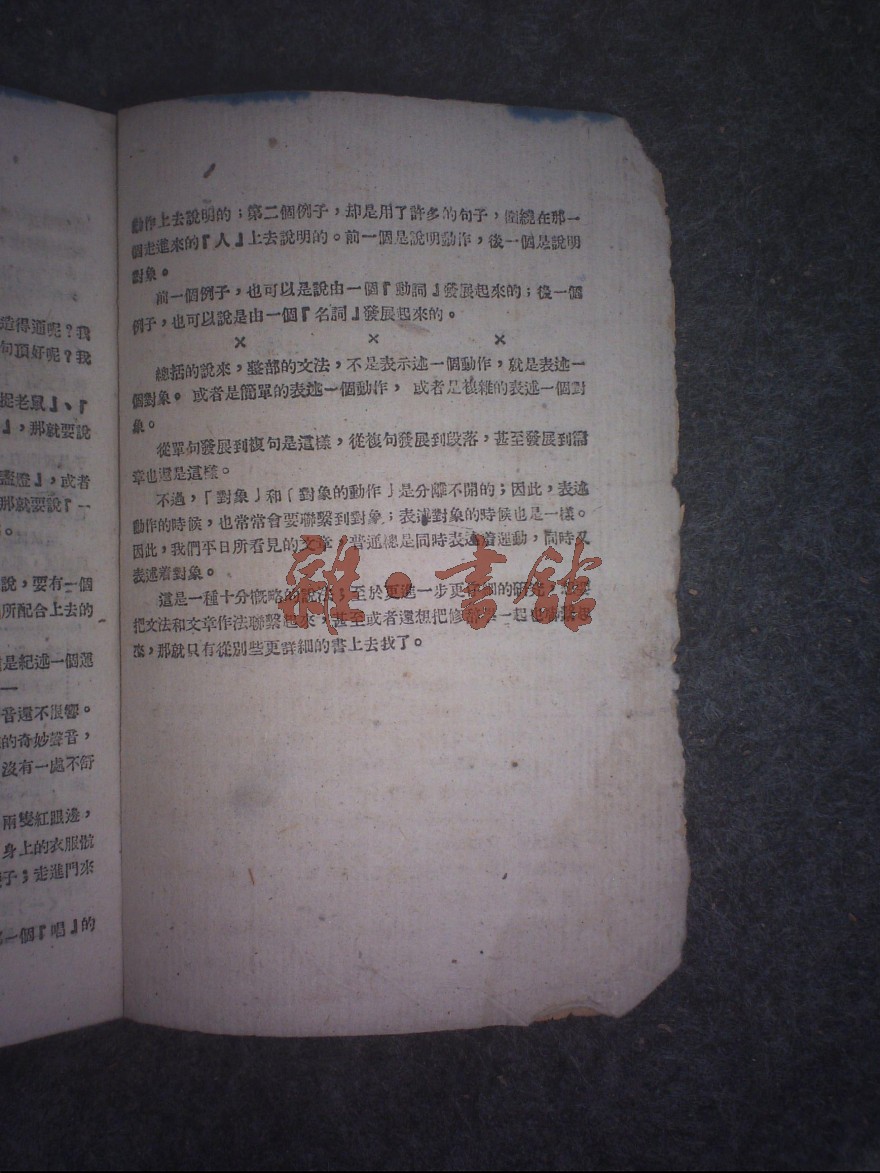 造得通呢？我
句頂好呢？我
捉老鼠』、『
』，那就要說
盞燈』，或者
那就要說『一
。
說，要有一個
所配合上去的
是紀述一個運
—
音還不很響。
的奇妙聲音，
沒有一處不舒
兩隻紅眼邊，
身上的衣服骯
子；走進門來
一個『唱』的
動作上去說明的；第二個例子，却是用了許多的句子，圍繞在那一
個走進來的『人』上去說明的。前一個是說明動作，後一個是說明
對象。
前一個例子，也可以是說由一個『動詞』發展起來的；後一個
例子，也可以說是由一個『名詞』發展起來的。
× × ×
總括的說來，整部的文法，不是表示述一個動作，就是表述一
個對象。或者是簡單的表述一個動作，或者是複雜的表述一個對
象。
從單句發展到複句是這樣，從複句發展到段落，甚至發展到篇
章也還是這樣。
不過，「對象」和「對象的動作」是分離不開的；因此，表述
動作的時候，也常常會要聯繫到對象；表述對象的時候也是一樣。
因此，我們平日所看見的文章，普通總是同時表述着運動，同時又
表述着對象。
這是一種十分概略的說法；至於更進一步更仔細的研究，
把文法和文章作法聯繫起來，甚至或者還想把修辭學一起也聯繫起
來，那就只有從別些更詳細的書上去找了。
雜·書館